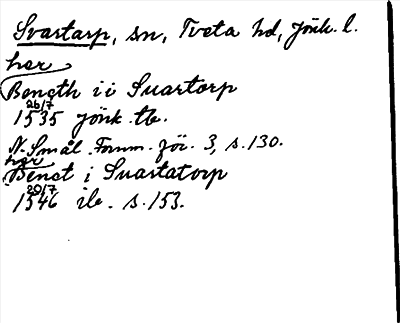 Svartarp, sn, Tveta hd, Jönk. l.
her
Bength i i Suartorp
26/7
1535 Jönk. tb.
N. Smål. Fornm. för. 3, s. 130.
her
Benct i Suartatorp
20/7
1546 ib. s. 153.